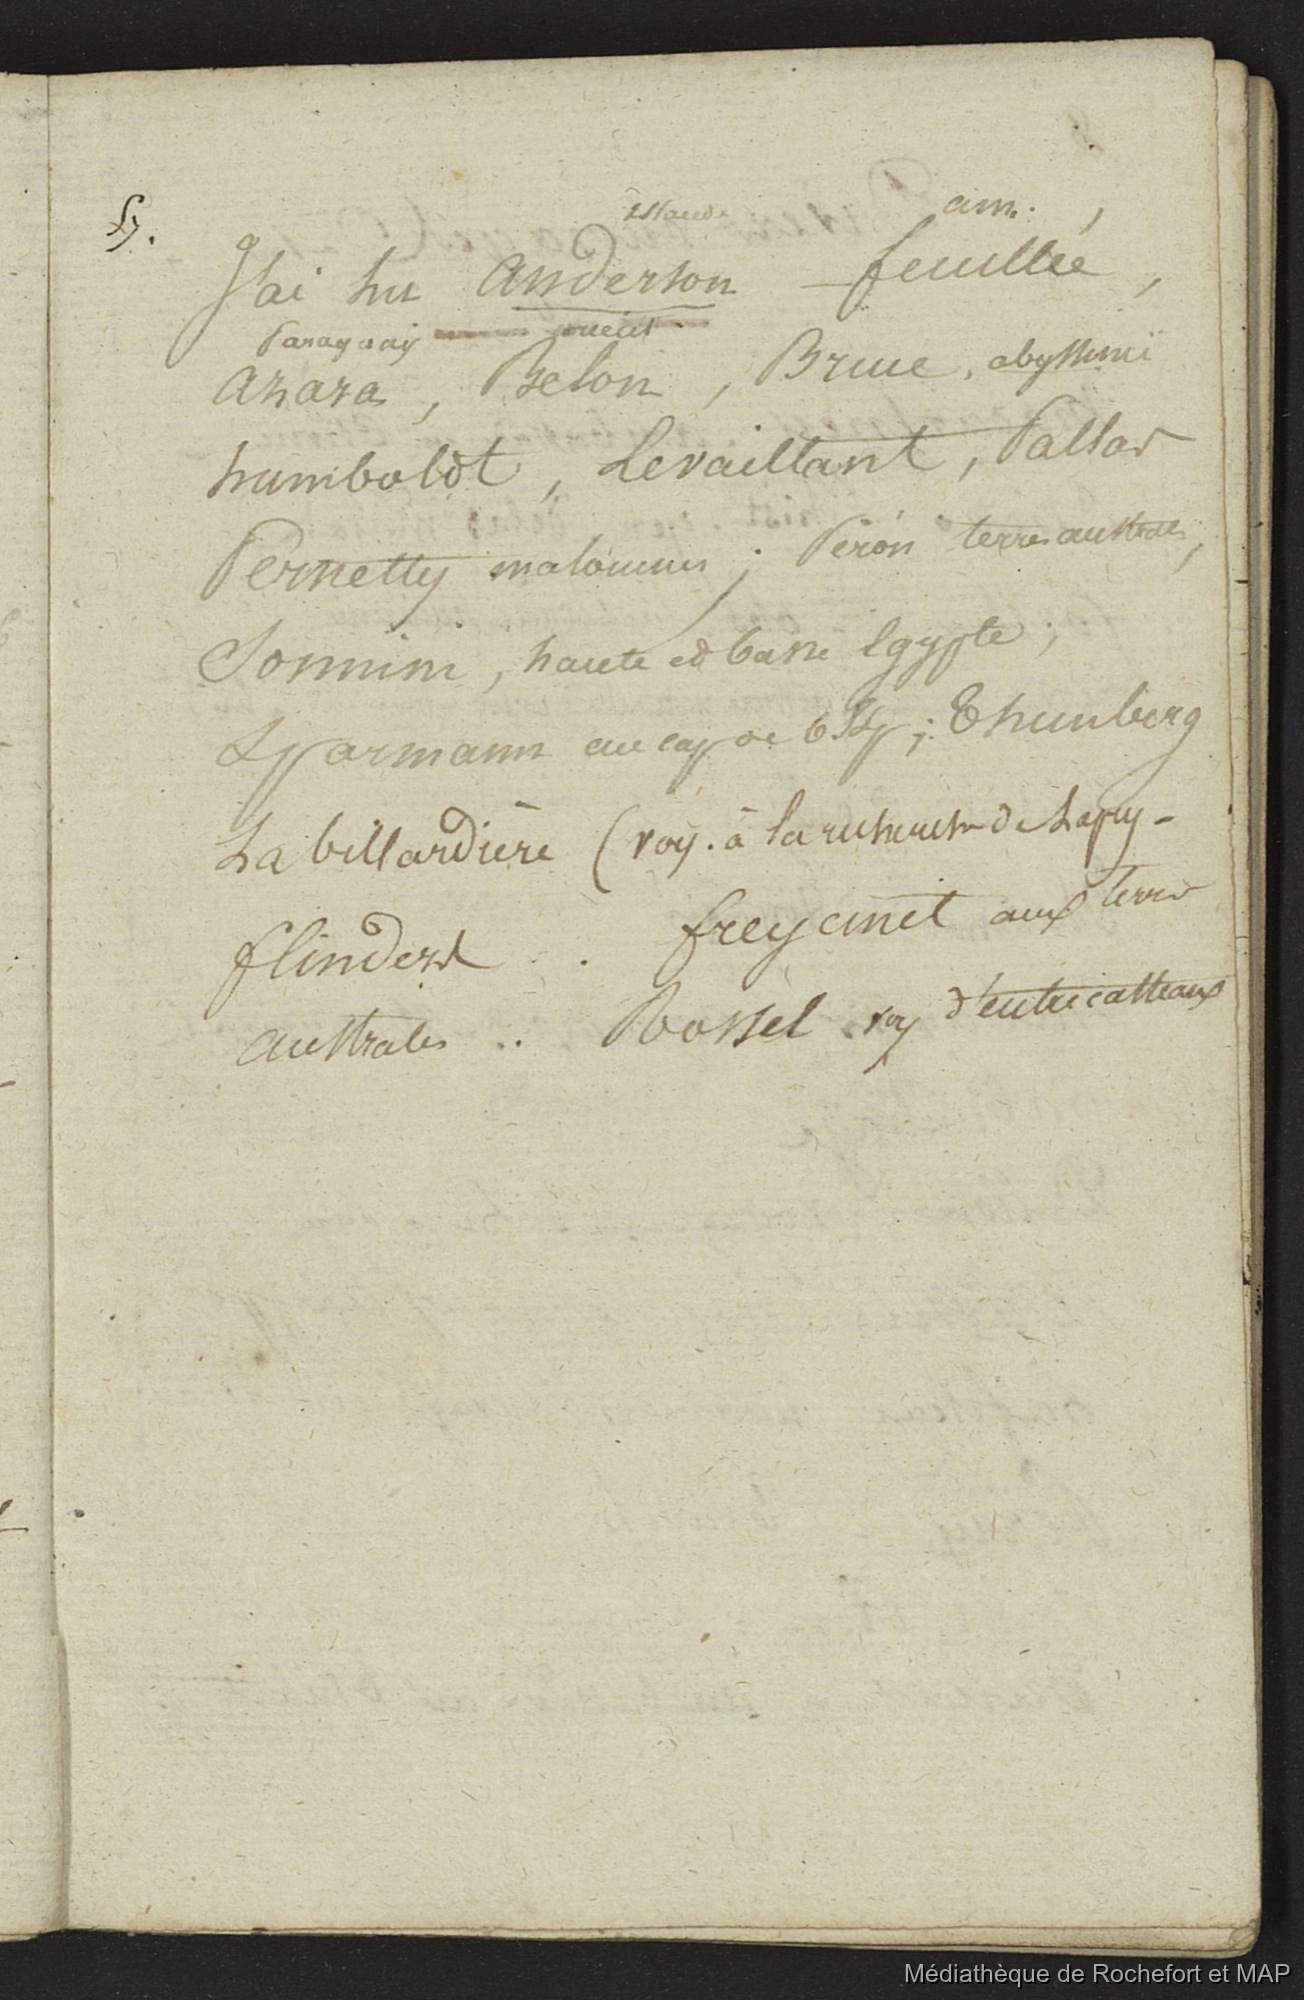 57.
Islande am.
J'ai lu Anderson – feuillée,
Paraguay
azara, Belon, Bruce, abyssinie
humboldt, Levaillant, Pallas
Pernetty malouines; Péron terres australes,
Sonnini, haute et basse Egypte;
Sparmann au cap de b. Esp; Thunberg
La billardière (voy. à la recherche de Lapey-
flinders . freycinet aux terres
australes .. Rossel voy d'entrecasteaux
Médiathèque de Rochefort et MAP